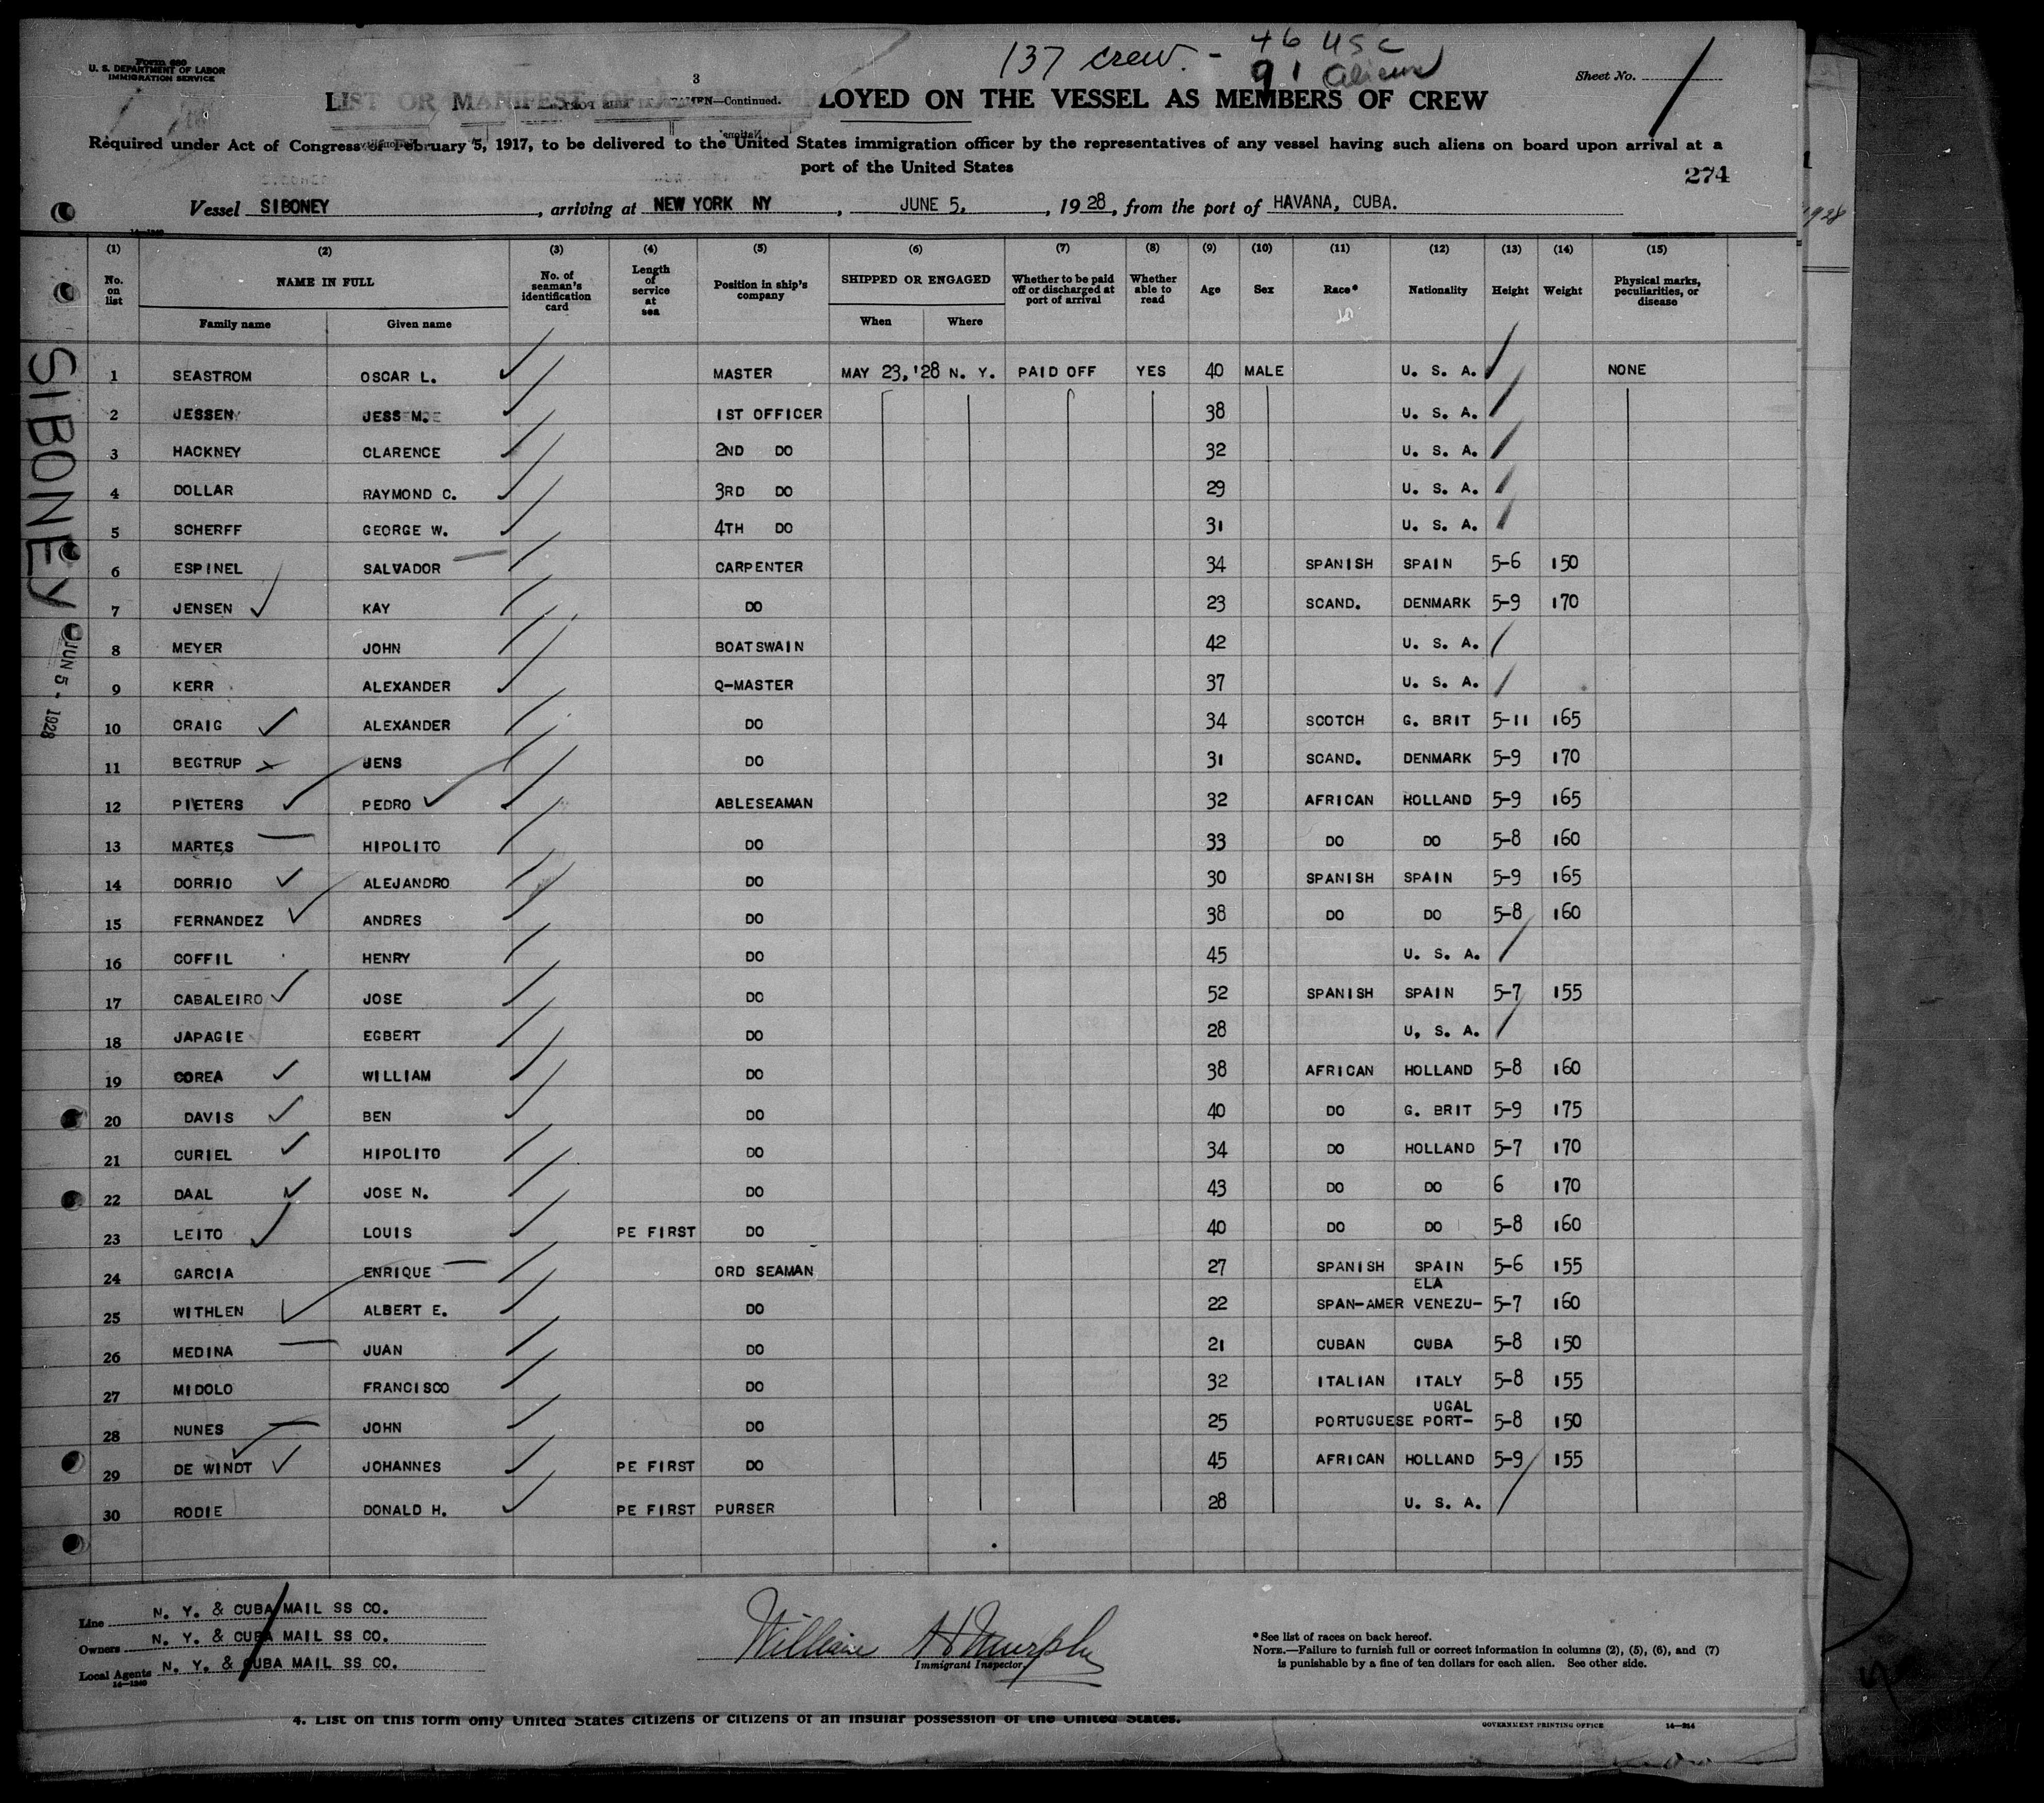 Form 680
U. S. DEPARTMENT OF LABOR
IMMIGRATION SERVICE
3
137 crew. - 46 USC
91 Aliens
Sheet No. 1
LIST OR MANIFEST OF LOYED ON THE VESSEL AS MEMBERS OF CREW
—Continued.
Required under Act of Congress of February 5, 1917, to be delivered to the United States immigration officer by the representatives of any vessel having such aliens on board upon arrival at a
port of the United States
274
Vessel SIBONEY, arriving at NEW YORK NY, JUNE 5, 1928, from the port of HAVANA, CUBA.
(1) (2) (3) (4) (5) (6) (7) (8) (9) (10) (11) (12) (13) (14) (15)
No. on list NAME IN FULL No. of seaman's identification card Length of service at sea Position in ship's company SHIPPED OR ENGAGED Whether to be paid off or discharged at port of arrival Whether able to read Age Sex Race* Nationality Height Weight Physical marks, peculiarities, or disease
Family name Given name When Where
1 SEASTROM OSCAR L. MASTER MAY 23, '28 N. Y. PAID OFF YES 40 MALE U. S. A. NONE
2 JESSEN JESS M. 1ST OFFICER 38 U. S. A.
3 HACKNEY CLARENCE 2ND DO 32 U. S. A.
4 DOLLAR RAYMOND C. 3RD DO 29 U. S. A.
5 SCHERFF GEORGE W. 4TH DO 31 U. S. A.
6 ESPINEL SALVADOR CARPENTER 34 SPANISH SPAIN 5-6 150
7 JENSEN KAY DO 23 SCAND. DENMARK 5-9 170
8 MEYER JOHN BOATSWAIN 42 U. S. A.
9 KERR ALEXANDER Q-MASTER 37 U. S. A.
10 CRAIG ALEXANDER DO 34 SCOTCH G. BRIT 5-11 165
11 BEGTRUP JENS DO 31 SCAND. DENMARK 5-9 170
12 PIETERS PEDRO ABLESEAMAN 32 AFRICAN HOLLAND 5-9 165
13 MARTES HIPOLITO DO 33 DO DO 5-8 160
14 DORRIO ALEJANDRO DO 30 SPANISH SPAIN 5-9 165
15 FERNANDEZ ANDRES DO 38 DO DO 5-8 160
16 COFFIL HENRY DO 45 U. S. A.
17 CABALEIRO JOSE DO 52 SPANISH SPAIN 5-7 155
18 JAPAGIE EGBERT DO 28 U, S. A.
19 COREA WILLIAM DO 38 AFRICAN HOLLAND 5-8 160
20 DAVIS BEN DO 40 DO G. BRIT 5-9 175
21 CURIEL HIPOLITO DO 34 DO HOLLAND 5-7 170
22 DAAL JOSE N. DO 43 DO DO 6 170
23 LEITO LOUIS PE FIRST DO 40 DO DO 5-8 160
24 GARCIA ENRIQUE ORD SEAMAN 27 SPANISH SPAIN 5-6 155
ELA
25 WITHLEN ALBERT E. DO 22 SPAN-AMER VENEZU- 5-7 160
26 MEDINA JUAN DO 21 CUBAN CUBA 5-8 150
27 MIDOLO FRANCISCO DO 32 ITALIAN ITALY 5-8 155
UGAL
28 NUNES JOHN DO 25 PORTUGUESE PORT- 5-8 150
29 DE WINDT JOHANNES PE FIRST DO 45 AFRICAN HOLLAND 5-9 155
30 RODIE DONALD H. PE FIRST PURSER 28 U. S. A.
SIBONEY
JUN 5 - 1928
1928
Line N. Y. & CUBA MAIL SS CO.
Owners N. Y. & CUBA MAIL SS CO.
Local Agents N. Y. & CUBA MAIL SS CO.
14—1240
William H Murphy
Immigrant Inspector
*See list of races on back hereof.
NOTE.—Failure to furnish full or correct information in columns (2), (5), (6), and (7)
is punishable by a fine of ten dollars for each alien. See other side.
4. List on this form only United States citizens or citizens of an insular possession of the United States.
GOVERNMENT PRINTING OFFICE 14—214